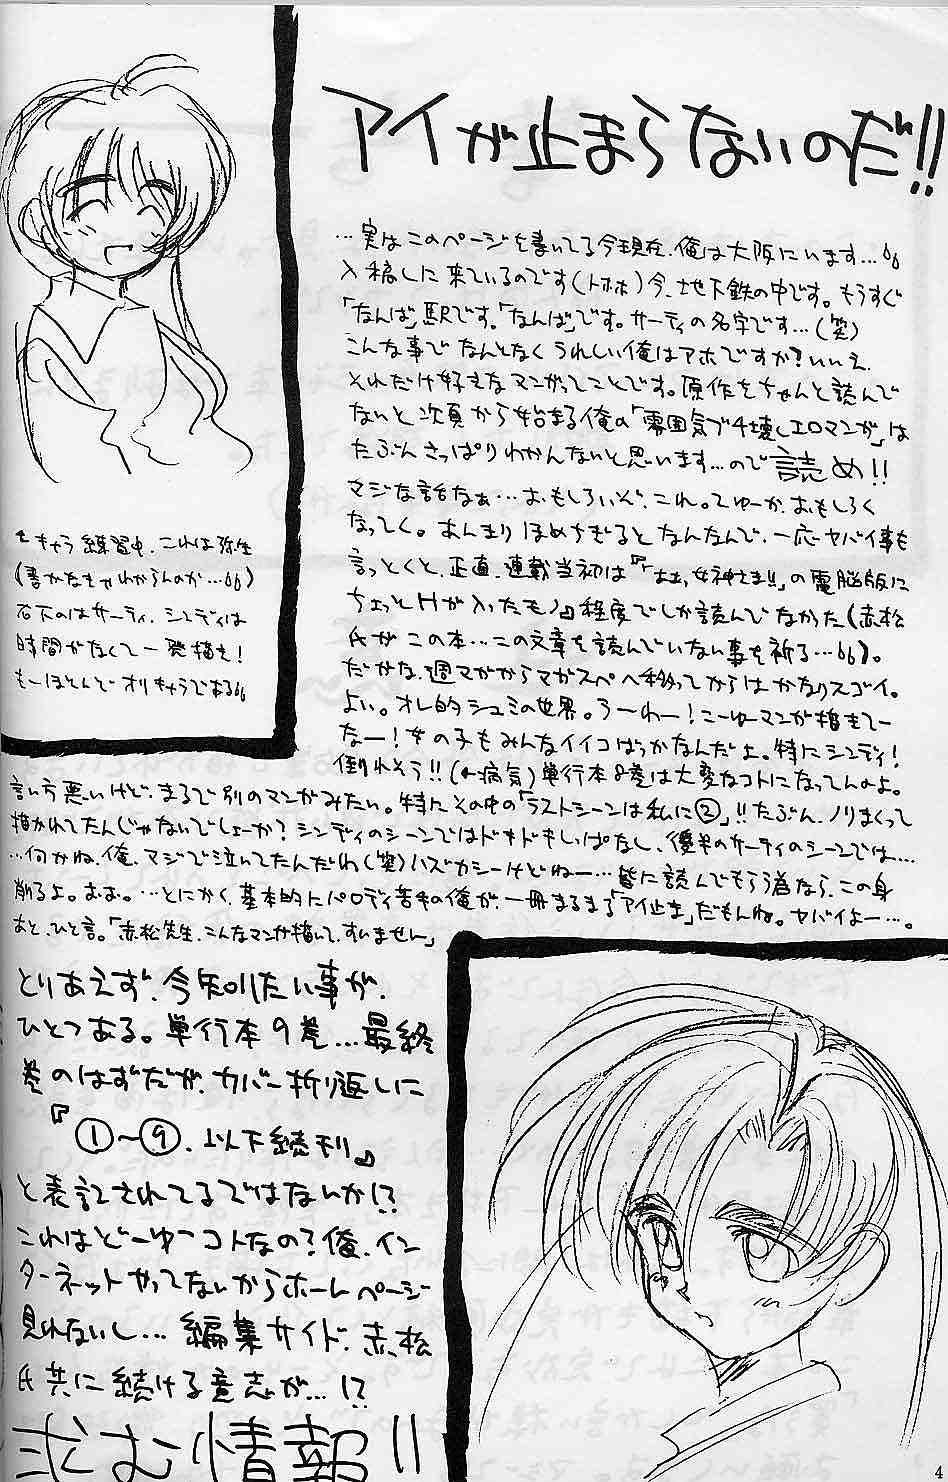 アイが止まらないのだ!!
…実はこのページを書いてる今現在、俺は大阪にいます…
入稿しに来ているのです(トホホ)今、地下鉄の中です。もうすぐ
「なんば」駅です。「なんば」です。サーティの名字です…(笑)
こんな事でなんとなくうれしい俺はアホですか?いいえ、
それだけ好きなマンガってことです。原作をちゃんと読んで
ないと次頁から始まる俺の「雰囲気ブチ壊しエロマンガ」は
たぶんさっぱりわかんないと思います…ので読め!!
マジな話なぁ…おもしろいぞ、これ。てゆーか、おもしろく
なってく。あんまりほめちぎるとなんなんで、一応ヤバイ事も
言っとくと、正直、連載当初は『「ああっ女神さまっ!!」の電脳版に
ちょっとHが入ったモノ』程度でしか読んでなかった(赤松
氏がこの本…この文章を読んでいない事を祈る…)。
だがな、週マガからマガスペへ移ってからはかなりスゴイ。
よい。オレ的シュミの世界。うーわー!こーゆーマンガ描きてー
なー!女の子もみんなイイコばっかなんだよ。特にシンディ!
倒れそう!!(←病気)単行本8巻は大変なコトになってんのよ。
言い方悪いけど、まるで別のマンガみたい。特にその中の「ラストシーンは私に②」!!たぶん、ノリまくって
描かれてたんじゃないでしょーか?シンディのシーンではドキドキしっぱなし、後半のサーティのシーンでは…
…何かね、俺、マジで泣いてたんだわ(笑)ハズカシーけどねー…皆に読んでもらう為なら、この身
削るよ。おお。…とにかく、基本的にパロディ苦手の俺が、一冊まるまる「アイ止ま」だもんね。ヤバイよー…。
あと、ひと言。「赤松先生、こんなマンガ描いて、すいません」
キャラ練習中、これは弥生
(書かなきゃわからんのか…)
右下のはサーティ、シンディは
時間がなくて一発描き!
もーほとんどオリキャラである
とりあえず、今知りたい事が、
ひとつある。単行本9巻…最終
巻のはずだが、カバー折り返しに
『①〜⑨、以下続刊』
と表記されてるではないか!?
これはどーゆーコトなの?俺、イン
ターネットやってないからホームページ
見れないし…編集サイド、赤松
氏共に続ける意志が…!?
求む情報!!
4